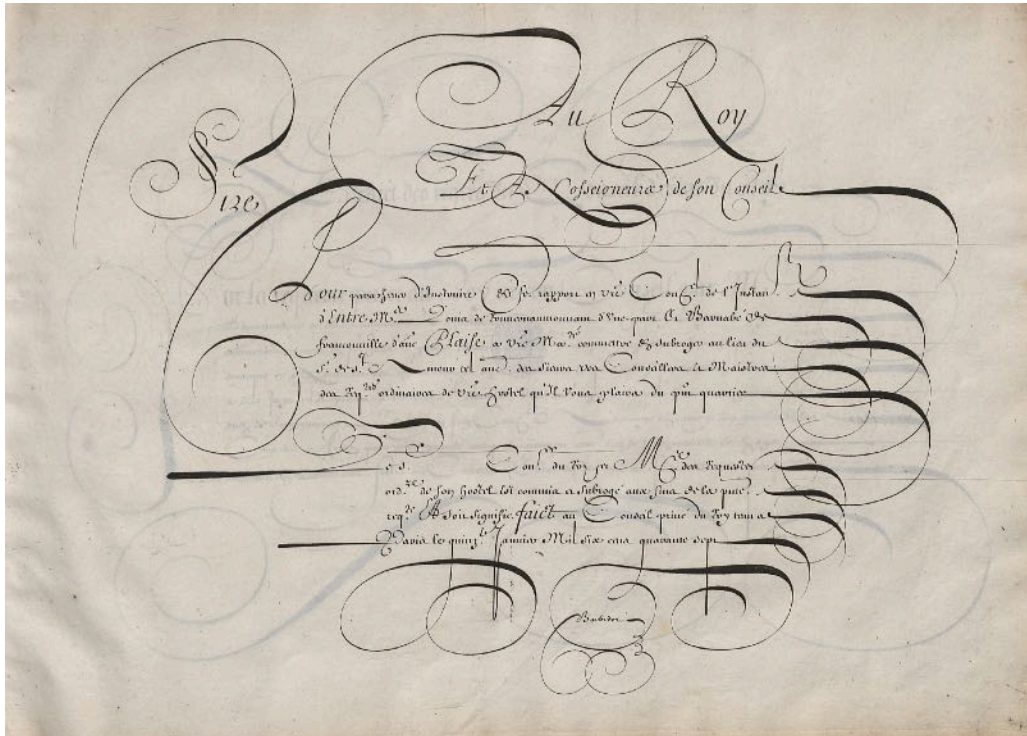 Au Roy
Sire
Et A Nosseigneurs de son Conseil
Pour parachever d'Instruire & fe. rapport en vre Con.el de l'Instan
d'Entre M.re d'une part Et Barnabé de
francouville d'autre Plaise a vre Ma.té commettre & subroger au lieu du
s.r de s.t des sieurs voz Conseillers et Maistres
des Req.tes ordinaires de vre hostel qu'Il vous plaira du pnt quartier
Con.er du Roy M.e des requestes
ord.re de son hostel est commis et subrogé aux fins de la pnte
req.te & soit signiffié faict au Conseil privé du Roy tenu a
Paris le quinz.e Janvier Mil six cens quarante sept